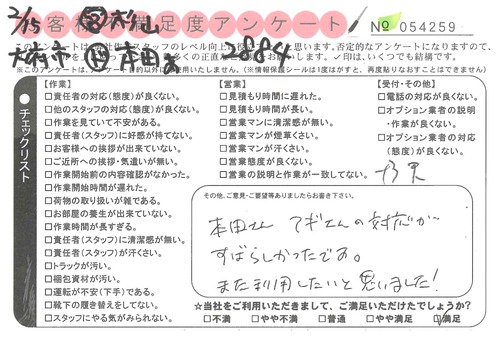 2/15
お客様満足度アンケート
№ 054259
2884
※このアンケートは、アンケート目的以外には使用いたしません。(※情報保護シールは1度はがすと、再度貼りなおすことはできません)
チェックリスト
【作業】
□責任者の対応(態度)が良くない。
□他のスタッフの対応(態度)が良くない。
□作業を見ていて不安がある。
□責任者(スタッフ)に好感が持てない。
□お客様への挨拶が出来ていない。
□ご近所への挨拶・気遣いが無い。
□作業開始前の内容確認がなかった。
□作業開始時間が遅れた。
□荷物の取り扱いが雑である。
□お部屋の養生が出来ていない。
□作業時間が長すぎる。
□責任者(スタッフ)に清潔感が無い。
□責任者(スタッフ)が汗くさい。
□トラックが汚い。
□梱包資材が汚い。
□運転が不安(下手)である。
□靴下の履き替えをしてない。
□スタッフにやる気がみられない。
【営業】
□見積もり時間に遅れた。
□見積もり時間が長い。
□営業マンに清潔感が無い。
□営業マンが煙草くさい。
□営業マンが汗くさい。
□営業態度が良くない。
□営業の説明と作業が一致してない。
【受付・その他】
□電話の対応が良くない。
□オプション業者の説明
・作業が良くない。
□オプション業者の対応
(態度)が良くない。
その他、ご意見・ご要望等ありましたらお書き下さい。
本田さん アギさんの対応が
すばらしかったです。
また利用したいと思いました!
☆当社をご利用いただきまして、ご満足いただけたでしょうか?
□不満 □やや不満 □普通 □やや満足 □満足